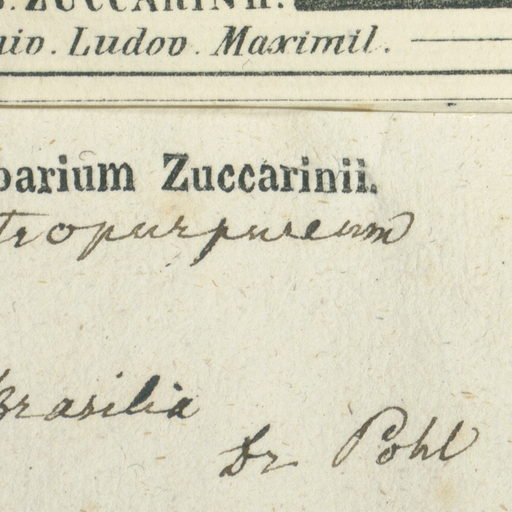 ZUCCARINII.
uiv. Ludov. Maximil.
barium Zuccarinii.
tropurpureum
Brasilia
Dr Pohl